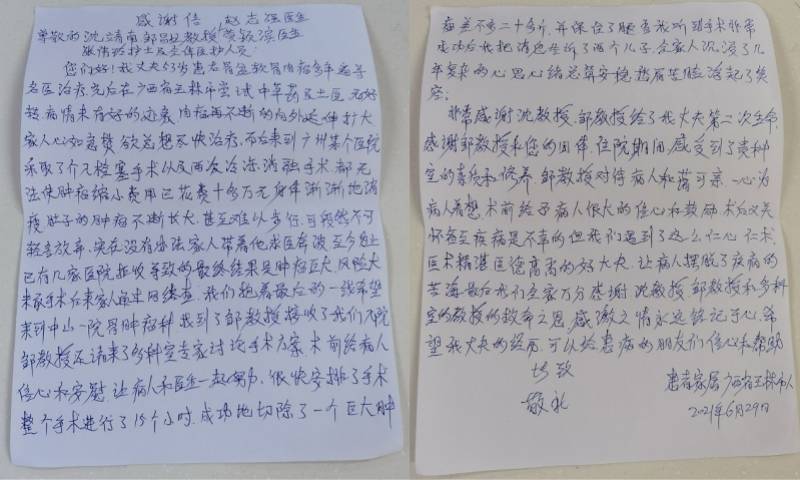 感谢信 赵志强医生
尊敬的沈靖南邹昌业教授/黄颖滨医生
护士及全体医护人员:
您们好!我丈夫53岁患者骨盆软骨肉瘤多年遍寻
名医治疗,先后在广西省玉林市尝试中草药及土医无好
转病情未有好的迹象肉瘤再不断的向外延伸扩大
家人心如急焚欲总想尽快治疗,而后来到广州某个医院
采取了介入栓塞手术以及两次冷冻消融手术都无
法使肿瘤缩小费用已花费十多万元身体渐渐地消
瘦肚子的肿瘤不断长大,甚至难以步行,可我然不可
轻言放弃,实在没有办法家人带着他求医奔波至今为止
已有几家医院拒收导致的最终结果是肿瘤巨大,风险大
来家手术后来家人通过网络查,我们抱着最后的一线希望
来到中山一院骨肿瘤科找到了邹教授接收了我们入院
邹教授还请来了多科室专家讨论手术方案术前给病人
信心和安慰让病人和医生一起努力,很快安排了手术
整个手术进行了15个小时.成功地切除了一个巨大肿
瘤差不多二十多斤,并保住了腿当我听到手术非常
成功后我把消息告诉了两个儿子,全家人沉浸了几
年复杂的心思心绪总算安稳愁眉苦脸泛起了笑
容;
非常感谢沈教授,邹教授给了我丈夫第二次生命,
感谢邹教授和您的团体住院期间,感受到了贵科
室的素质和修养邹教授对待病人和蔼可亲一心为
病人着想术前给予病人很大的信心和鼓励术后又关
怀备至疾病是不幸的但我们遇到了这么仁心仁术,
医术精湛医德高尚的好大夫,让病人摆脱了疾病的
苦海最后我们全家万分感谢沈教授,邹教授和多科
室的教授的救命之恩,感激之情永远铭记于心,希
望我丈夫的经历,可以给患病的朋友们信心和帮助
此致
敬礼
患者家属广西省玉林市人
2021年6月29日